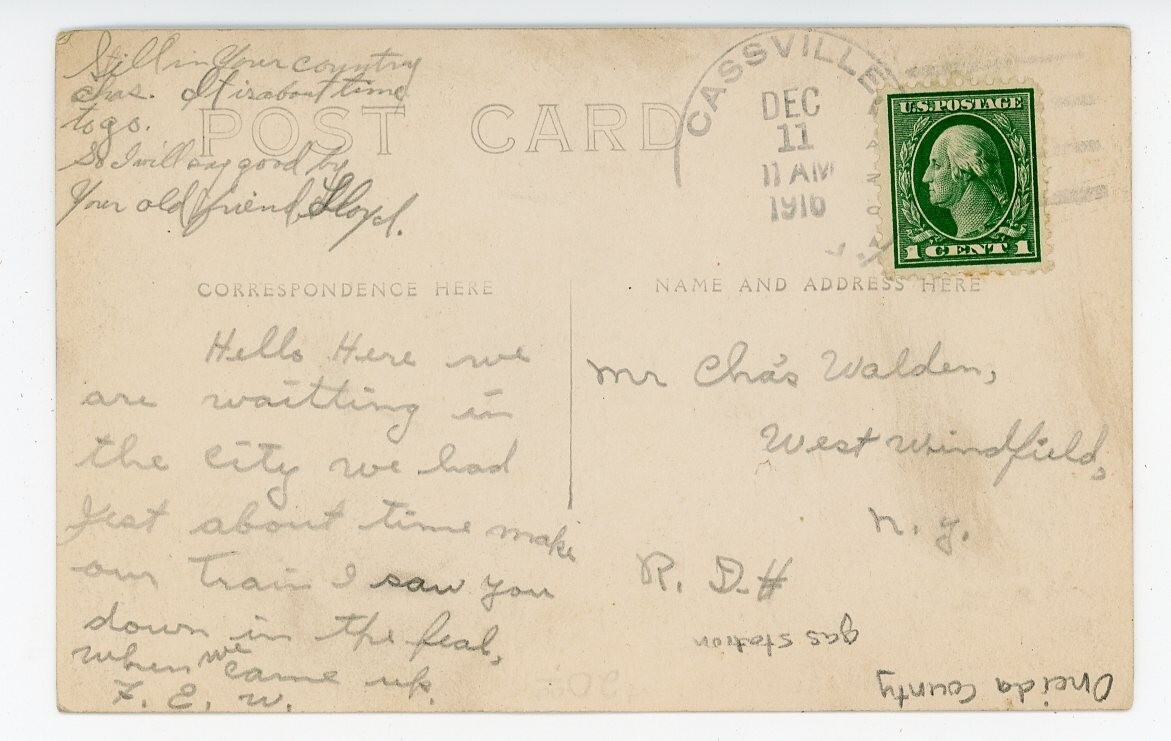 Still in Your country
Chas. It is about time
to go.
So I will say good by
Your old friend Lloyd.
POST CARD
CASSVILLE
DEC
11
11 AM
1916
U.S.POSTAGE
1 CENT 1
CORRESPONDENCE HERE
NAME AND ADDRESS HERE
Hello Here we
are waitting in
the city we had
Jest about time make
our train I saw you
down in the feal,
when we came up.
F. E. W.
Mr Cha's Walden,
West Windfield,
N. Y.
R. D. #
gas station
Oneida County